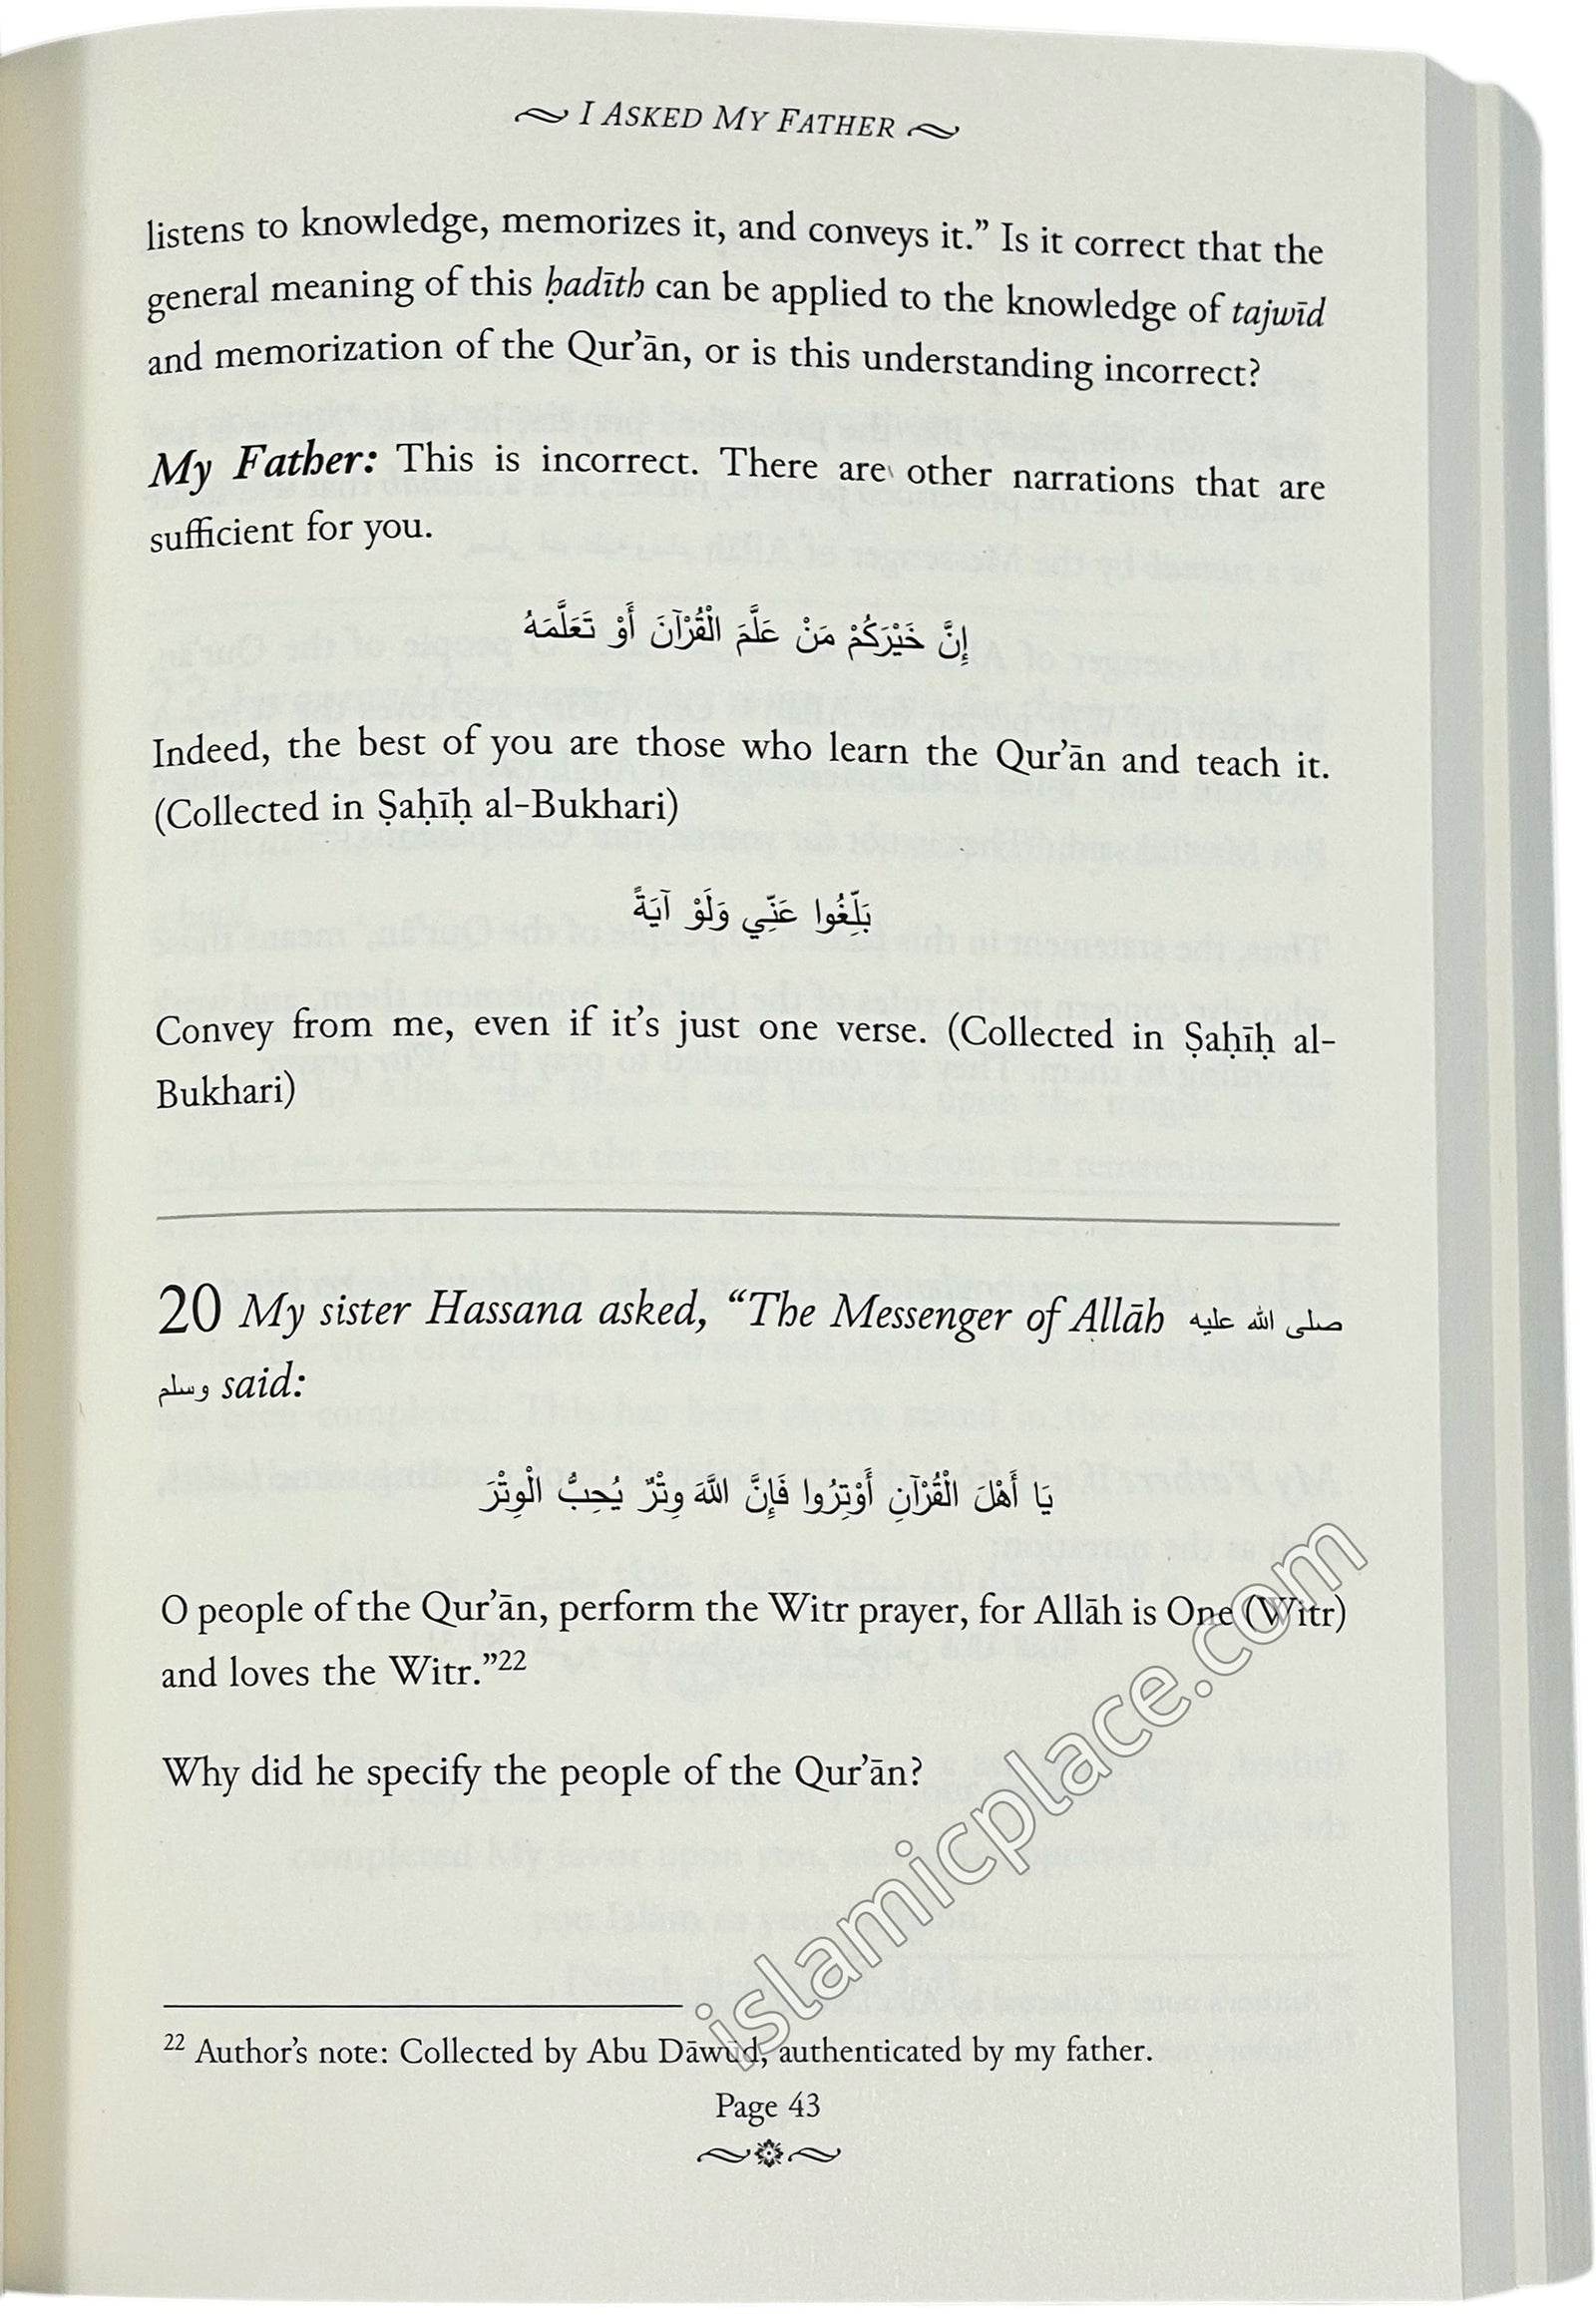 I ASKED MY FATHER
listens to knowledge, memorizes it, and conveys it.” Is it correct that the
general meaning of this ḥadīth can be applied to the knowledge of tajwīd
and memorization of the Qur’ān, or is this understanding incorrect?
My Father: This is incorrect. There are other narrations that are
sufficient for you.
إِنَّ خَيْرَكُمْ مَنْ عَلَّمَ الْقُرْآنَ أَوْ تَعَلَّمَهُ
Indeed, the best of you are those who learn the Qur’ān and teach it.
(Collected in Ṣaḥīḥ al-Bukhari)
بَلِّغُوا عَنِّي وَلَوْ آيَةً
Convey from me, even if it’s just one verse. (Collected in Ṣaḥīḥ al-
Bukhari)
20 My sister Hassana asked, “The Messenger of Allāh صلى الله عليه
وسلم said:
يَا أَهْلَ الْقُرْآنِ أَوْتِرُوا فَإِنَّ اللَّهَ وِتْرٌ يُحِبُّ الْوِتْرَ
O people of the Qur’ān, perform the Witr prayer, for Allāh is One (Witr)
and loves the Witr.”22
Why did he specify the people of the Qur’ān?
22 Author’s note: Collected by Abu Dāwūd, authenticated by my father.
Page 43
islamicplace.com